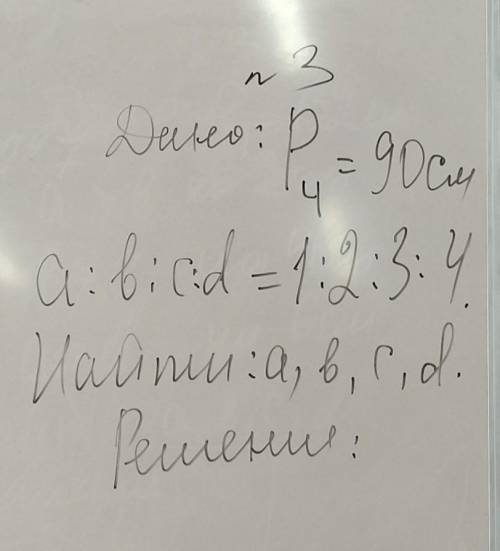 n 3
Дано: P₄ = 90 см
a : b : c : d = 1 : 2 : 3 : 4.
Найти: a, b, c, d.
Решение: